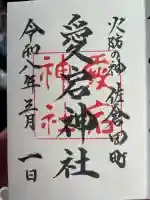 火防の神 佐倉田町
愛宕神社
愛宕神社
令和八年三月一日